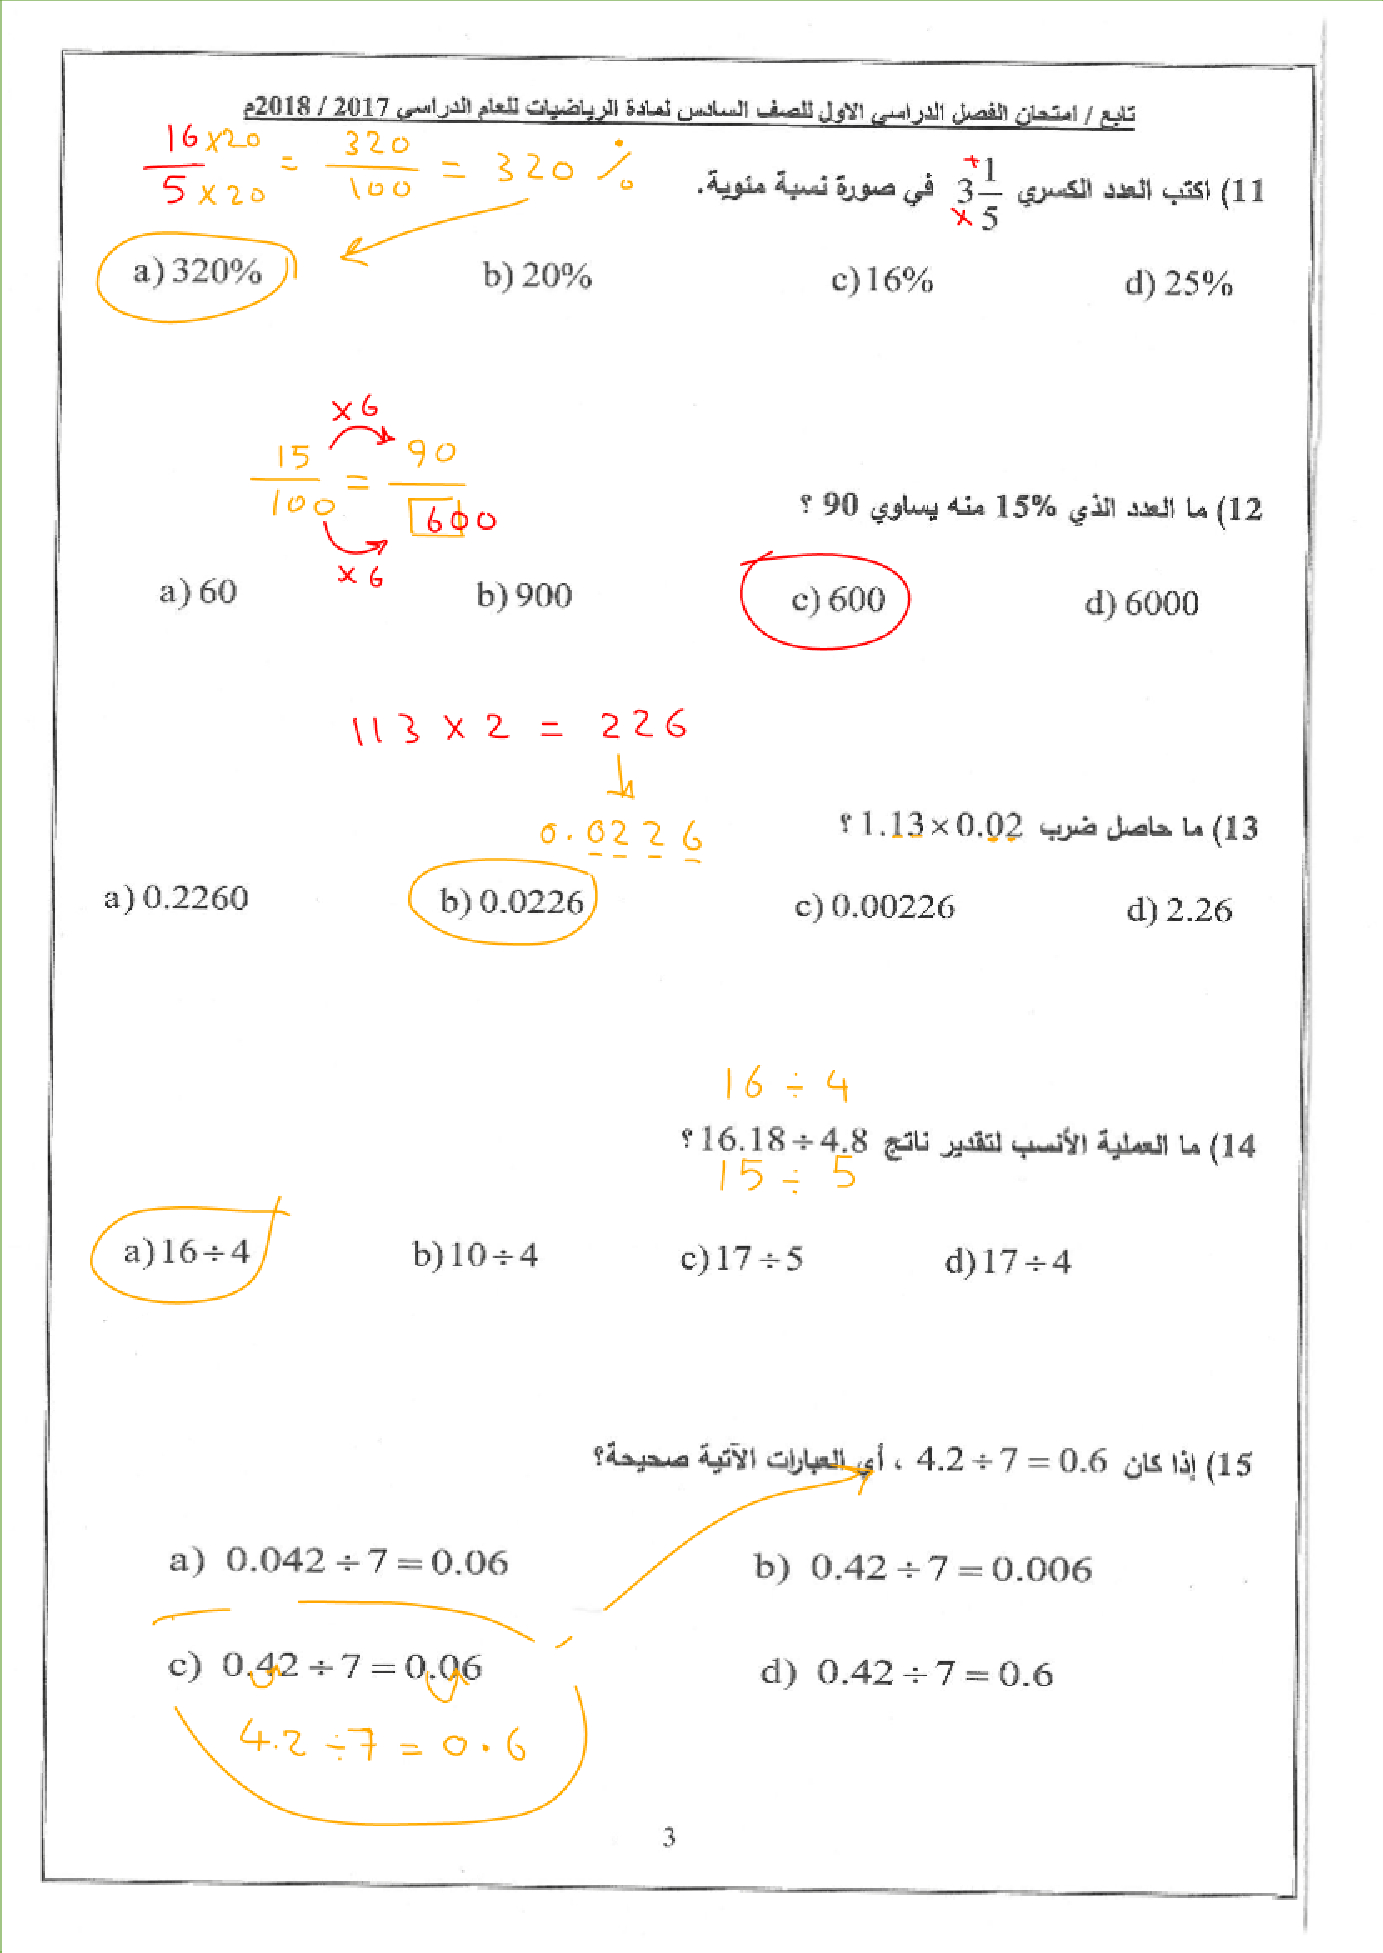 تابع / امتحان الفصل الدراسي الاول للصف السادس لمادة الرياضيات للعام الدراسي 2017 / 2018م
16×20 / 5×20 = 320 / 100 = 320 %
11) اكتب العدد الكسري 3 1/5 في صورة نسبة مئوية.
+
×
a) 320% b) 20% c) 16% d) 25%
×6
15 / 100 = 90 / 600
×6
12) ما العدد الذي 15% منه يساوي 90 ؟
a) 60 b) 900 c) 600 d) 6000
113 × 2 = 226
0.0226
13) ما حاصل ضرب 1.13 × 0.02 ؟
a) 0.2260 b) 0.0226 c) 0.00226 d) 2.26
16 ÷ 4
14) ما العملية الأنسب لتقدير ناتج 16.18 ÷ 4.8 ؟
15 ÷ 5
a) 16 ÷ 4 b) 10 ÷ 4 c) 17 ÷ 5 d) 17 ÷ 4
15) إذا كان 4.2 ÷ 7 = 0.6 ، أي العبارات الآتية صحيحة؟
a) 0.042 ÷ 7 = 0.06 b) 0.42 ÷ 7 = 0.006
c) 0.42 ÷ 7 = 0.06 d) 0.42 ÷ 7 = 0.6
4.2 ÷ 7 = 0.6
3